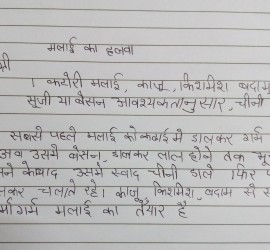 मलाई का हलवा
मी
1 कटोरी मलाई, काजू, किशमिश बदाम
सूजी या बेसन आवश्यकतानुसार, चीनी
सबसे पहले मलाई को कढाई में डालकर गर्म
अब उसमे बेसन डालकर लाल होने तक भू
ने के बाद उसमे स्वाद चीनी डाले फिर
कर चलाते रहे। काजू किशमिश, बदाम से स
र्मागर्म मलाई का तैयार है